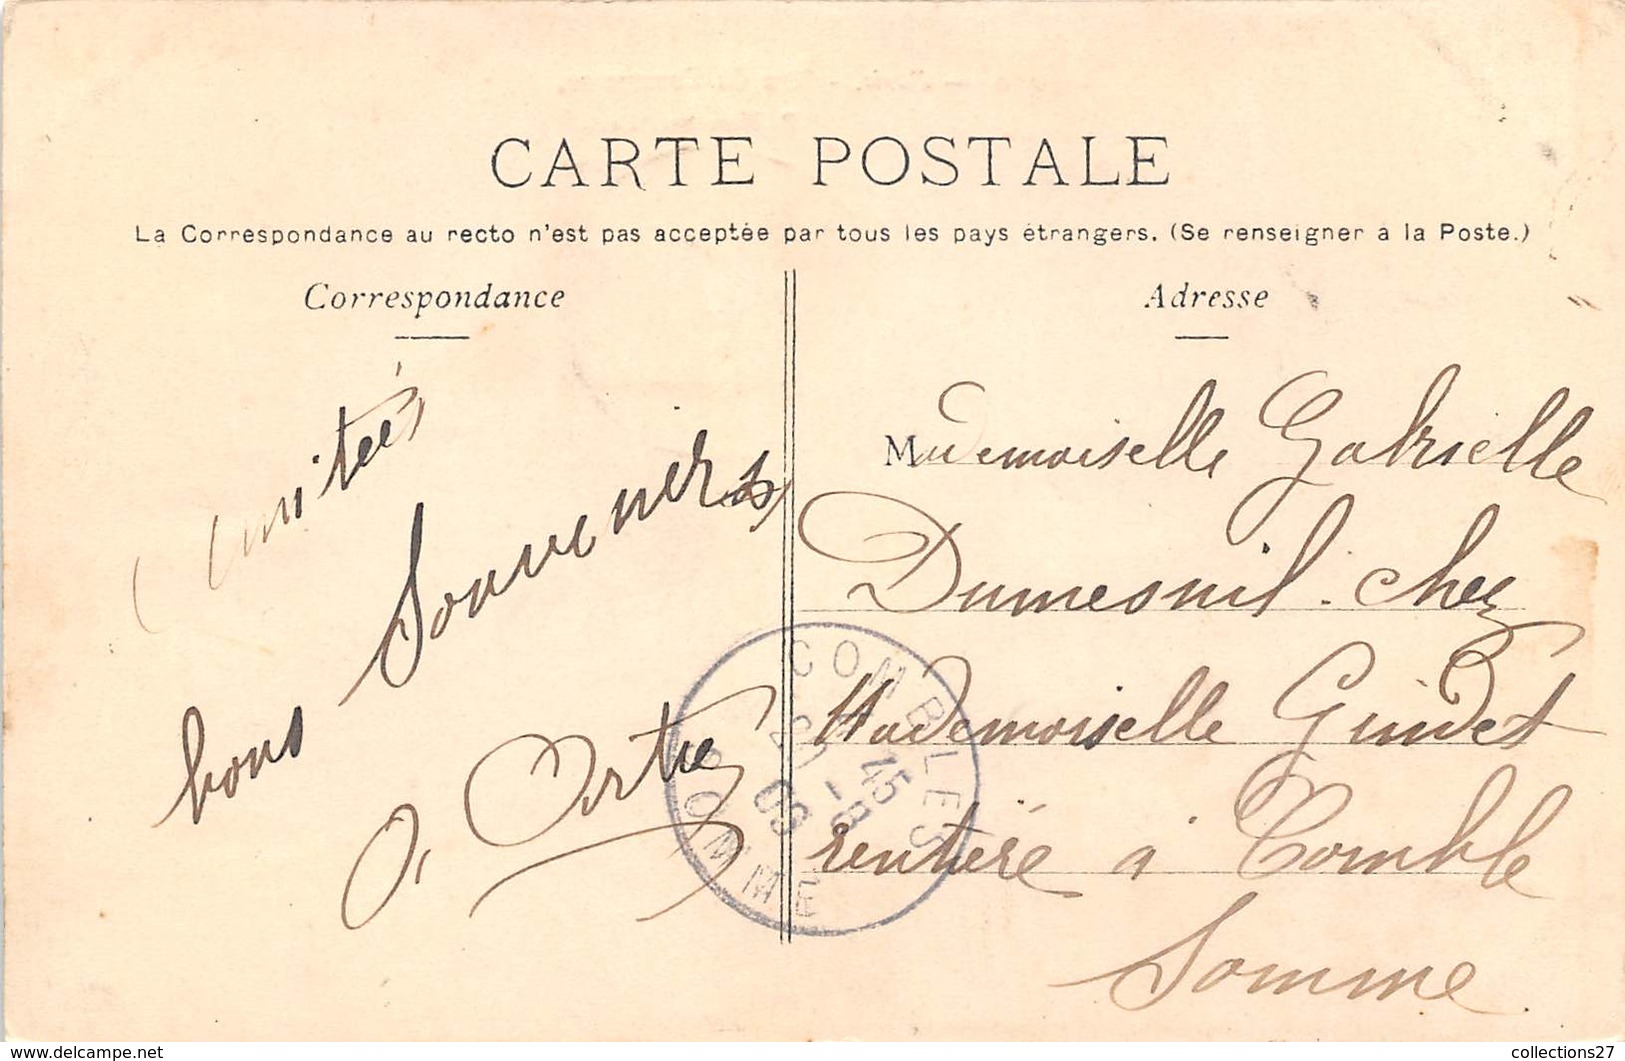 CARTE POSTALE
La Correspondance au recto n'est pas acceptée par tous les pays étrangers. (Se renseigner à la Poste.)
Correspondance
Amitiés
bons Souvenirs
Adresse
Mademoiselle Gabrielle
Dumesnil. chez
Mademoiselle Guidet
rentière à Comble
Somme
COMBLES
45
20 -8
09
SOMME
www.delcampe.net
collections27